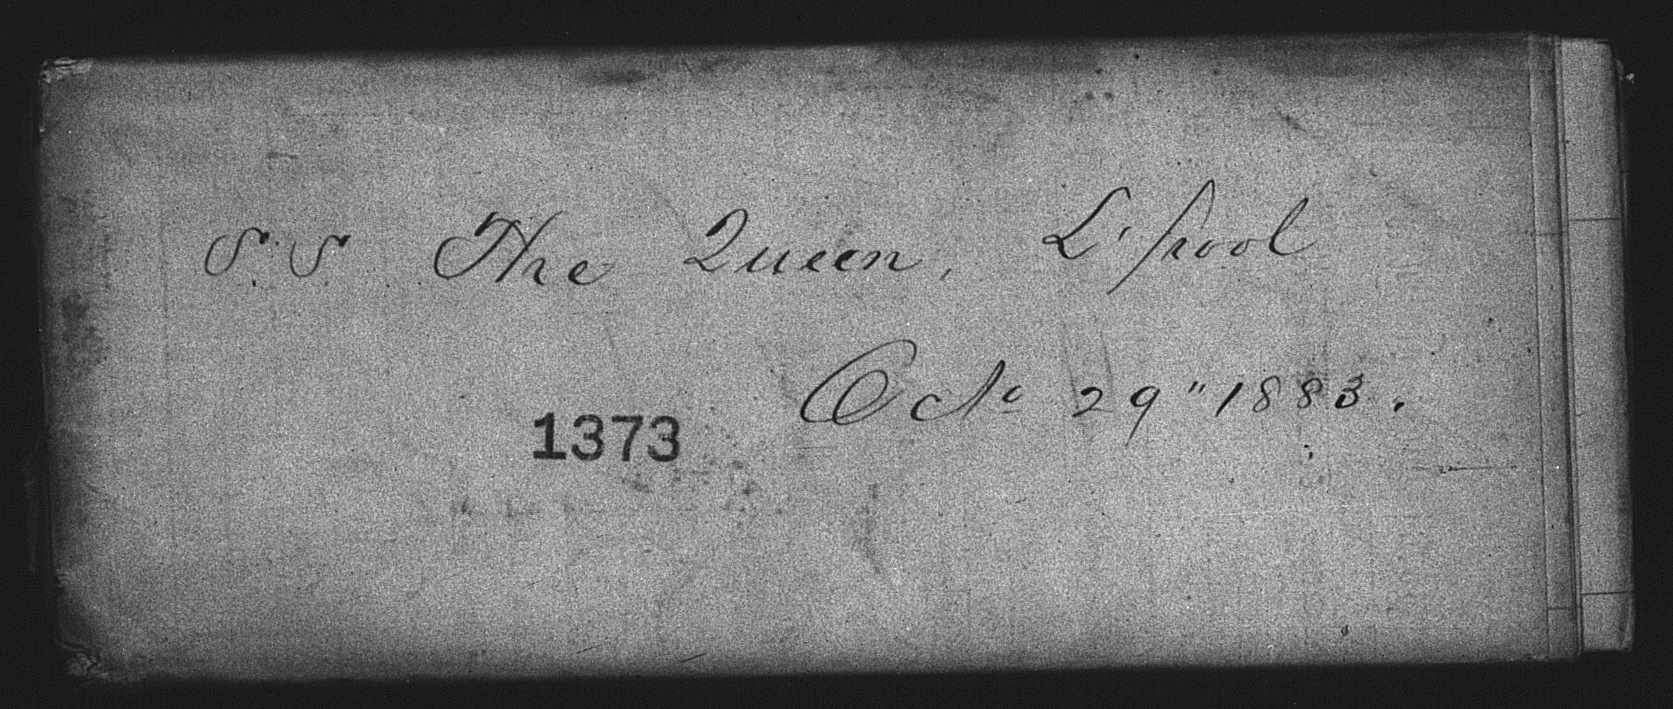 S.S. The Queen, L'pool
Octo 29" 1883.
1373